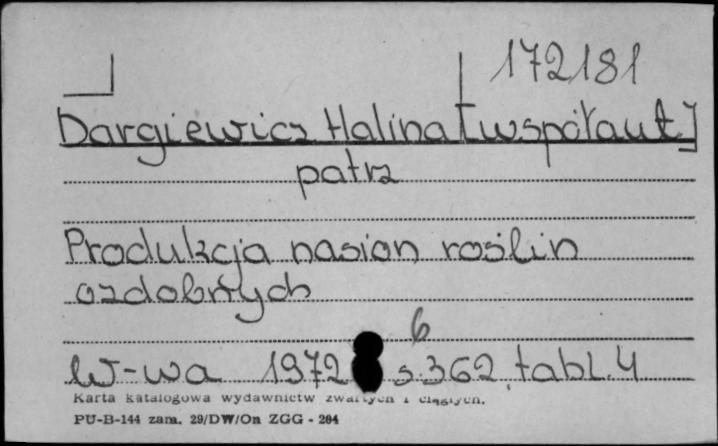 172181
Dargiewicz Halina [współaut]
patrz
Produkcja nasion roślin
ozdobnych
6
W-wa 1972 s. 362, tabl. 4
Karta katalogowa wydawnictw zwartych i ciągłych.
PU-B-144 zam. 29/DW/On ZGG - 284